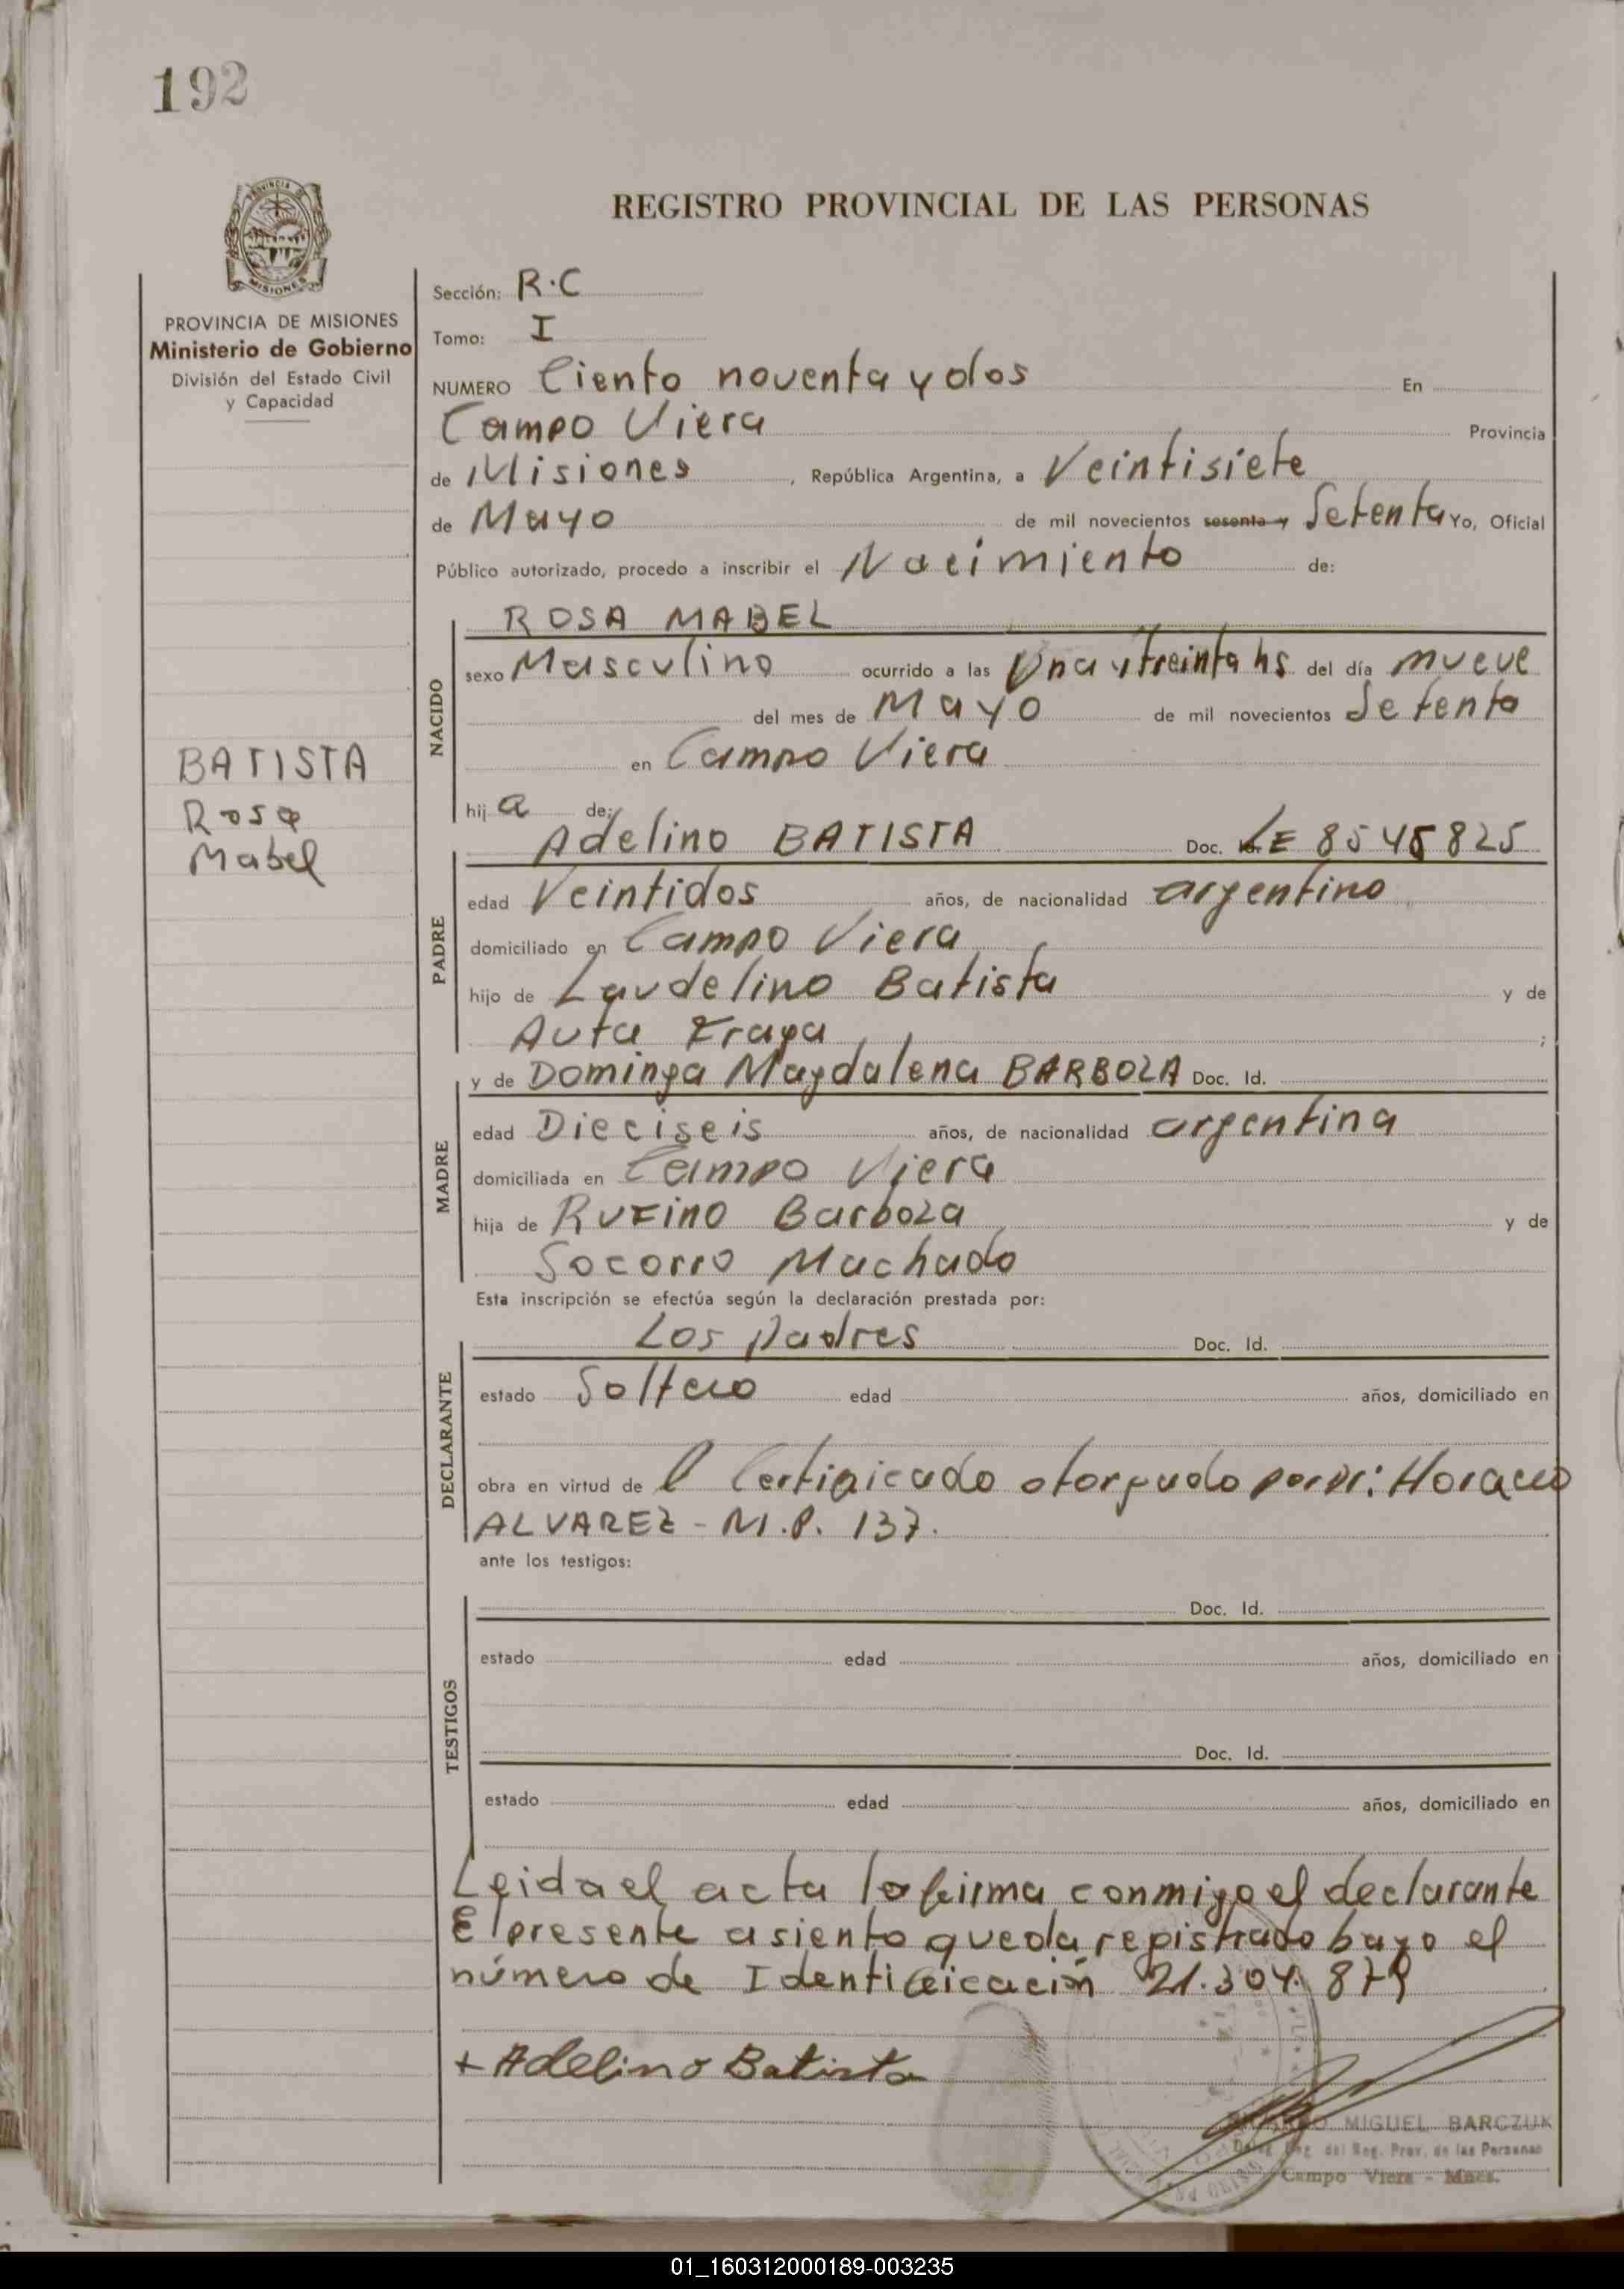 192
REGISTRO PROVINCIAL DE LAS PERSONAS
PROVINCIA DE MISIONES
Ministerio de Gobierno
División del Estado Civil
y Capacidad
BATISTA
Rosa
Mabel
Sección: R.C
Tomo: I
NUMERO Ciento noventa y dos En
Campo Viera Provincia
de Misiones, República Argentina, a Veintisiete
de Mayo de mil novecientos sesenta y Setenta Yo, Oficial
Público autorizado, procedo a inscribir el Nacimiento de:
NACIDO
ROSA MABEL
sexo Masculino ocurrido a las Una y treinta hs del día nueve
del mes de Mayo de mil novecientos Setenta
en Campo Viera
hija de:
PADRE
Adelino BATISTA Doc. LE 8545825
edad Veintidos años, de nacionalidad argentino
domiciliado en Campo Viera
hijo de Laudelino Batista y de
Auta Fraga ;
MADRE
y de Dominga Magdalena BARBOZA Doc. Id.
edad Dieciseis años, de nacionalidad argentina
domiciliada en Campo Viera
hija de Rufino Barboza y de
Socorro Machado
Esta inscripción se efectúa según la declaración prestada por:
DECLARANTE
Los padres Doc. Id.
estado Soltero edad años, domiciliado en
obra en virtud de l Certificado otorgado por Dr: Horacio
ALVAREZ - M.P. 137.
ante los testigos:
TESTIGOS
Doc. Id.
estado edad años, domiciliado en
Doc. Id.
estado edad años, domiciliado en
Leida el acta la firma conmigo el declarante
El presente asiento queda registrado bayo el
número de Identificación 21.304.879
+ Adelino Batista
MIGUEL BARCZUK
del Reg. Prov. de las Personas
Campo Viera - Mnes.
01_160312000189-003235